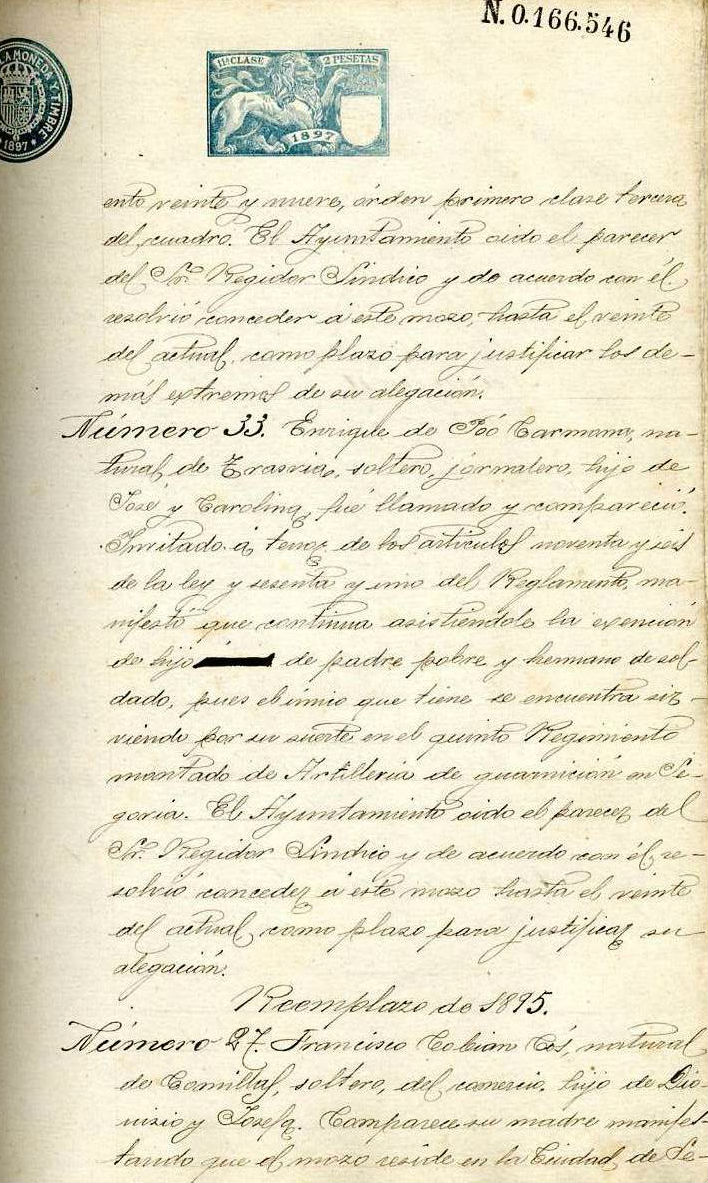 N. 0.166.546
11ª CLASE 2 PESETAS
1897
LA MONEDA Y TIMBRE
* 1897 *
ento veinte y nueve, órden primero clase tercera
del cuadro. El Ayuntamiento oido el parecer
del Sr. Regidor Sindico y de acuerdo con él
resolvió conceder á este mozo, hasta el veinte
del actual, como plazo para justificar los de-
más extremos de su alegación.
Número 33. Enrique de Poó Carmona, na-
tural de Trasvia, soltero, jornalero, hijo de
Jose y Carolina, fué llamado y compareció.
Invitado á tenor de los articulos noventa y seis
de la ley y sesenta y uno del Reglamento, ma-
nifestó que continua asistiendole la exención
de hijo de padre pobre y hermano de sol-
dado, pues el único que tiene se encuentra sir-
viendo por su suerte en el quinto Regimiento
montado de Artilleria de guarnición en Se-
govia. El Ayuntamiento oido el parecer del
Sr. Regidor Sindico y de acuerdo con él re-
solvió conceder á este mozo hasta el veinte
del actual, como plazo para justificar su
alegación.
Reemplazo de 1895.
Número 27. Francisco Cobian Cós, natural
de Comillas, soltero, del comercio, hijo de Dio-
nisio y Josefa. Comparece su madre manifes-
tando que el mozo reside en la Ciudad de Se-